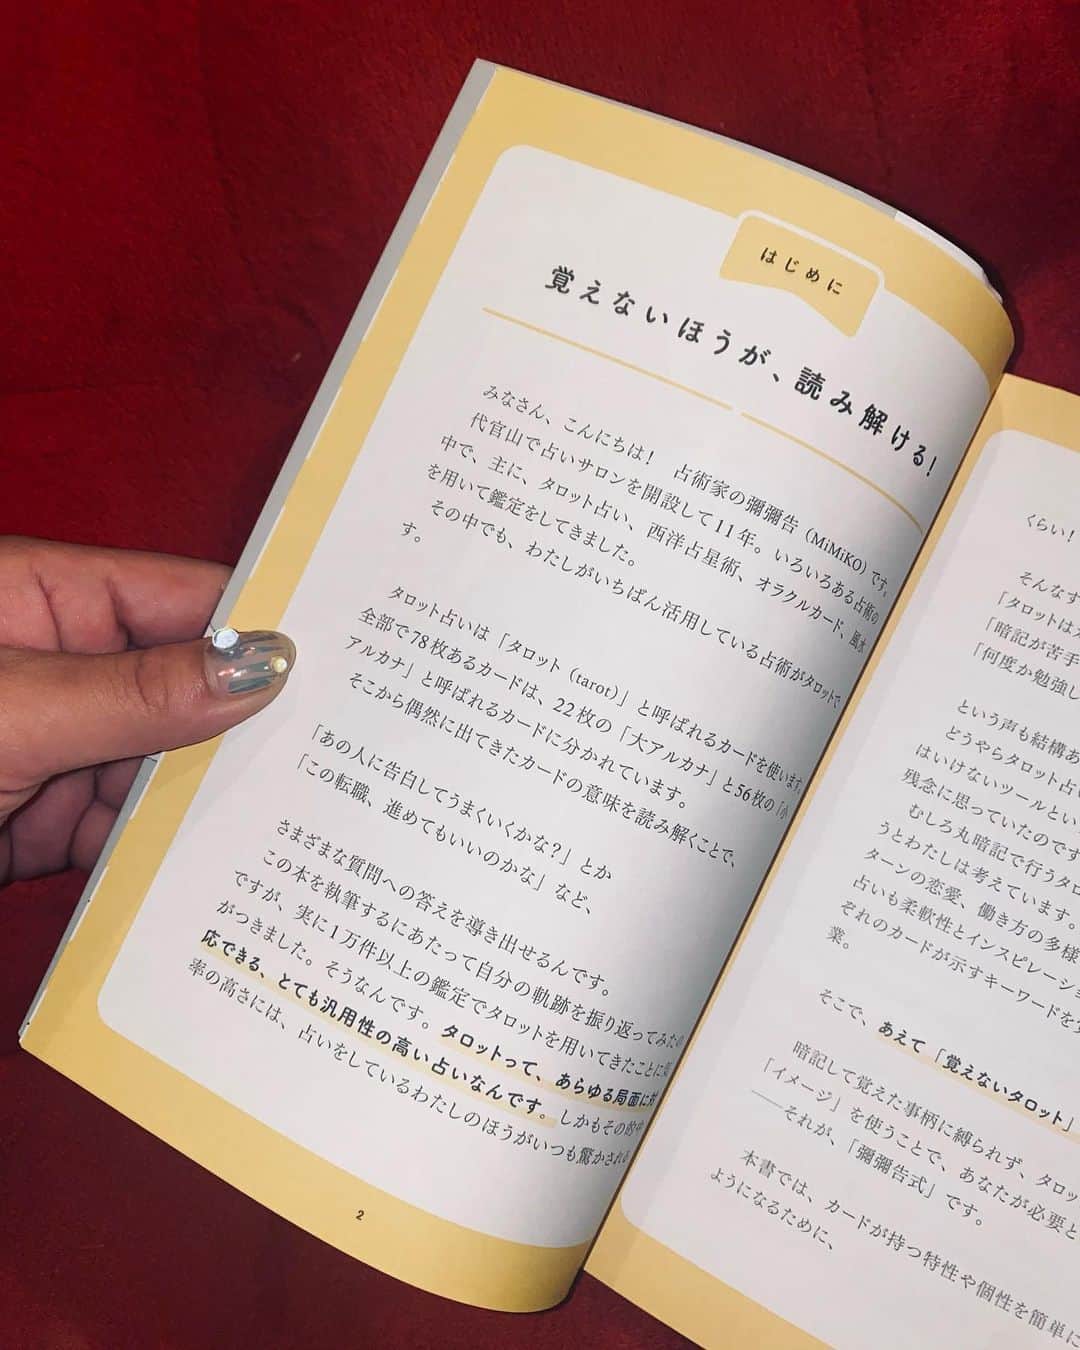 はじめに
覚えないほうが、読み解ける!
みなさん、こんにちは! 占術家の彌彌告(MiMiKO)です。
代官山で占いサロンを開設して11年。いろいろある占術の
中で、主に、タロット占い、西洋占星術、オラクルカード、風水
を用いて鑑定をしてきました。
その中でも、わたしがいちばん活用している占術がタロットで
す。
タロット占いは「タロット(tarot)」と呼ばれるカードを使います。
全部で78枚あるカードは、22枚の「大アルカナ」と56枚の「小
アルカナ」と呼ばれるカードに分かれています。
そこから偶然に出てきたカードの意味を読み解くことで、
「あの人に告白してうまくいくかな?」とか
「この転職、進めてもいいのかな」など、
さまざまな質問への答えを導き出せるんです。
この本を執筆するにあたって自分の軌跡を振り返ってみたの
ですが、実に1万件以上の鑑定でタロットを用いてきたことに気
がつきました。そうなんです。タロットって、あらゆる局面に対
応できる、とても汎用性の高い占いなんです。しかもその的中
率の高さには、占いをしているわたしのほうがいつも驚かされる
2
くらい!
そんなす
「タロットは
「暗記が苦手
「何度か勉強し
という声も結構あ
どうやらタロット占い
はいけないツールとい
残念に思っていたのです
むしろ丸暗記で行うタロ
うとわたしは考えています。
ターンの恋愛、働き方の多様
占いも柔軟性とインスピレーショ
ぞれのカードが示すキーワードを
業。
そこで、あえて「覚えないタロット」
暗記して覚えた事柄に縛られず、タロッ
「イメージ」を使うことで、あなたが必要と
――それが、「彌彌告式」です。
本書では、カードが持つ特性や個性を簡単に
ようになるために、